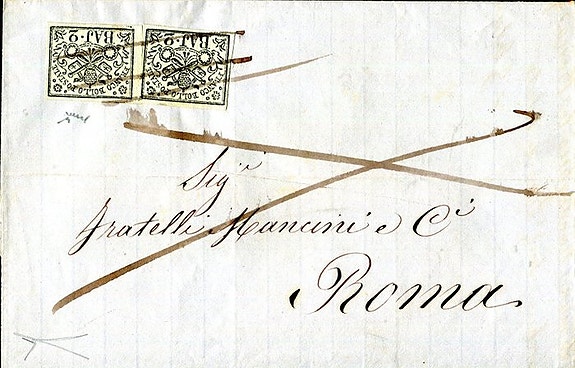 BAJ·2 BAJ·2
FRANCO BOLLO POSTALE FRANCO BOLLO POSTALE
Sig.ri
Fratelli Mancini e Ci
Roma